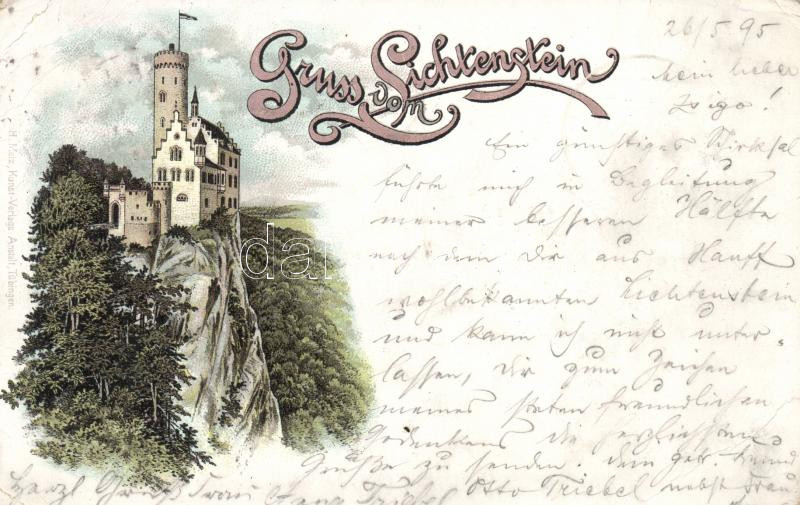 Gruss vom Lichtenstein
H. Metz, Kunst-Verlags Anstalt, Tübingen.
dar
26/5 95
Mein lieber
Zsiga!
Ein günstiges Schicksal
führte mich in Begleitung
meiner besseren Hälfte
nach dem Dir aus Hauff
wohlbekannten Lichtenstein
und kann ich nicht unter-
lassen, Dir zum Zeichen
meines steten freundlichen
Gedenkens die herzlichsten
Grüße zu senden. Dein getr. Freund
Otto Triebel nebst Frau
Herzl Gruß Frau Triebel